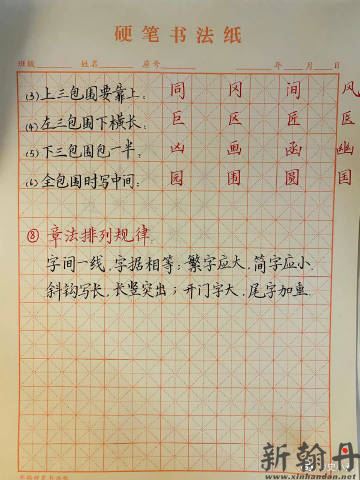 硬笔书法纸
班级 姓名 座号 年 月 日
(3)上三包围要靠上: 同 冈 间 风
(4)左三包围下横长: 巨 区 匠 医
(5)下三包围包一半: 凶 画 函 幽
(6)全包围时写中间: 园 围 圆 国
⑧ 章法排列规律
字间一线,字据相等;繁字应大,简字应小
斜钩写长,长竖突出;开门字大,尾字加重
新翰丹
www.xinhandan.net